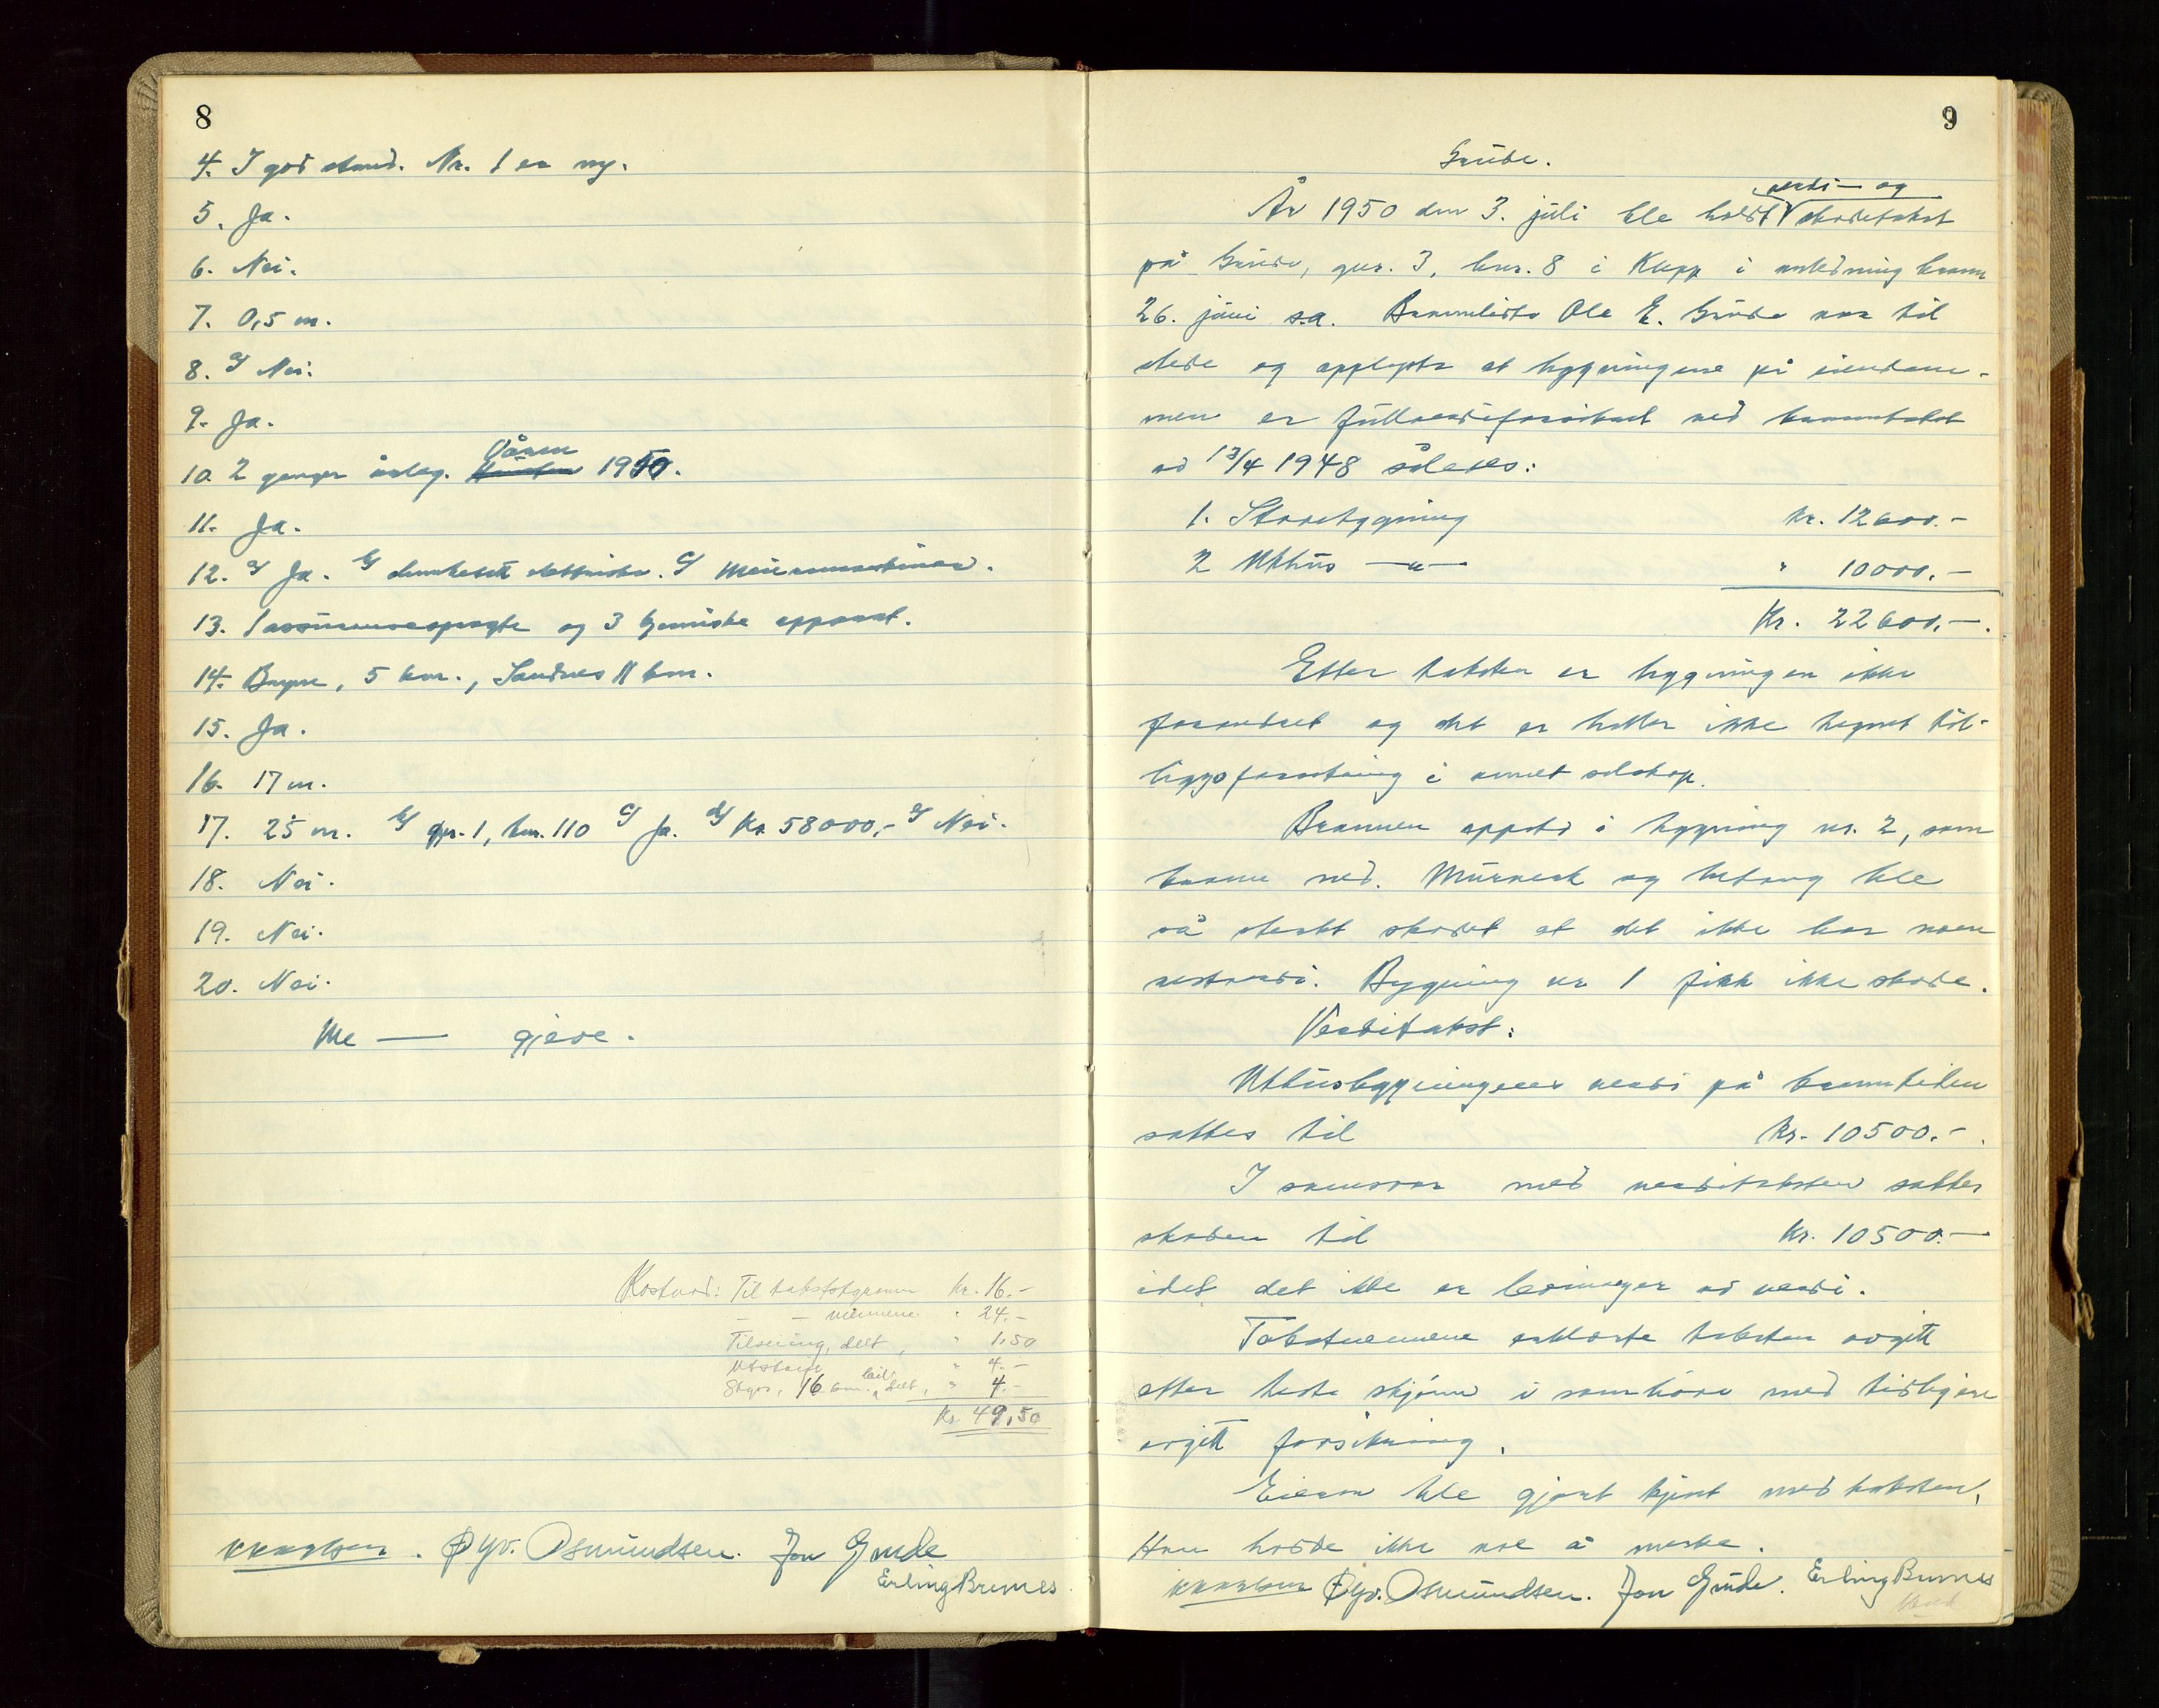 8
4. I god stand. Nr. 1 er ny.
5. Ja.
6. Nei.
7. 0,5 m.
8. a/ Nei.
9. Ja.
10. 2 ganger årleg. Våren 1950.
11. Ja.
12. a/ Ja. b/ elektriske. c/
13. 1 assuransesprøyte og 3 kjemiske apparat.
14. Bryne, 5 km., Sandnes 11 km.
15. Ja.
16. 17 m.
17. 25 m. b/ gnr. 1, bnr. 110 c/ Ja. d/ Kr. 58000,- e/ Nei.
18. Nei.
19. Nei.
20. Nei.
Me — gjeve.
Kostnad: Til takststyraren kr. 16.-
— — mennene " 24.-
Tilsening, delt, " 1,50
Utskrift " 4.-
Skyss, 16 km. bil, delt, " 4.-
Kr. 49,50
Øyv. Osmundsen. Jon Grude
Erling Brenes
9
Grude.
År 1950 den 3. juli ble holdt verdi- og skadetakst
på Grude, gnr. 3, bnr. 8 i Klepp i anledning brann
26. juni s.a. Brannlidte Ole E. Grude var til
stede og opplyste at bygningene på eiendom-
men er fullverdiforsikret ved branntakst
av 13/4 1948 således:
1. Storebygning kr. 12600.-
2 Uthus —"— " 10000.-
Kr. 22600.-.
Etter taksten er bygningen ikke
forandret og det er heller ikke tegnet til-
leggsforsikring i annet selskap.
Brannen oppsto i bygning nr. 2, som
brann ned. Murverk og betong ble
så sterkt skadet at det ikke har noen
restverdi. Bygning nr 1 fikk ikke skade.
Verditakst:
Uthusbygningens verdi på branntiden
settes til kr. 10500.-.
I samsvar med verditaksten settes
skaden til kr. 10500.-
idet det ikke er levninger av verdi.
Takstmennene erklærte taksten avgitt
etter beste skjønn i samhøve med tidligere
avgitt forsikring.
Eieren ble gjort kjent med taksten.
Han hadde ikke noe å merke.
Øyv. Osmundsen. Jon Grude. Erling Brenes